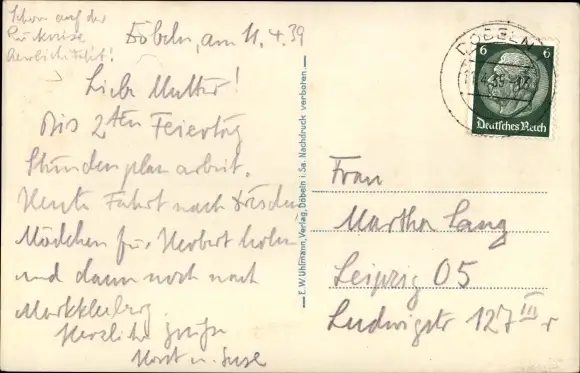 Schon auf der
Rückreise
Döbeln, am 11.4.39
Liebe Mutter!
Bis 2ten Feiertag
Stundenplan arbeit.
Heute Fahrt nach Dresden
Mädchen für Herbert holen
und dann noch nach
Markkleeberg
Herzliche Grüße
Horst u. Suse
E.W. Uhlmann, Verlag, Döbeln i. Sa. Nachdruck verboten.
DÖBELN
11.4.39
6 6
Deutsches Reich
Frau
Martha Lang
Leipzig O5
Ludwigstr 127 III r